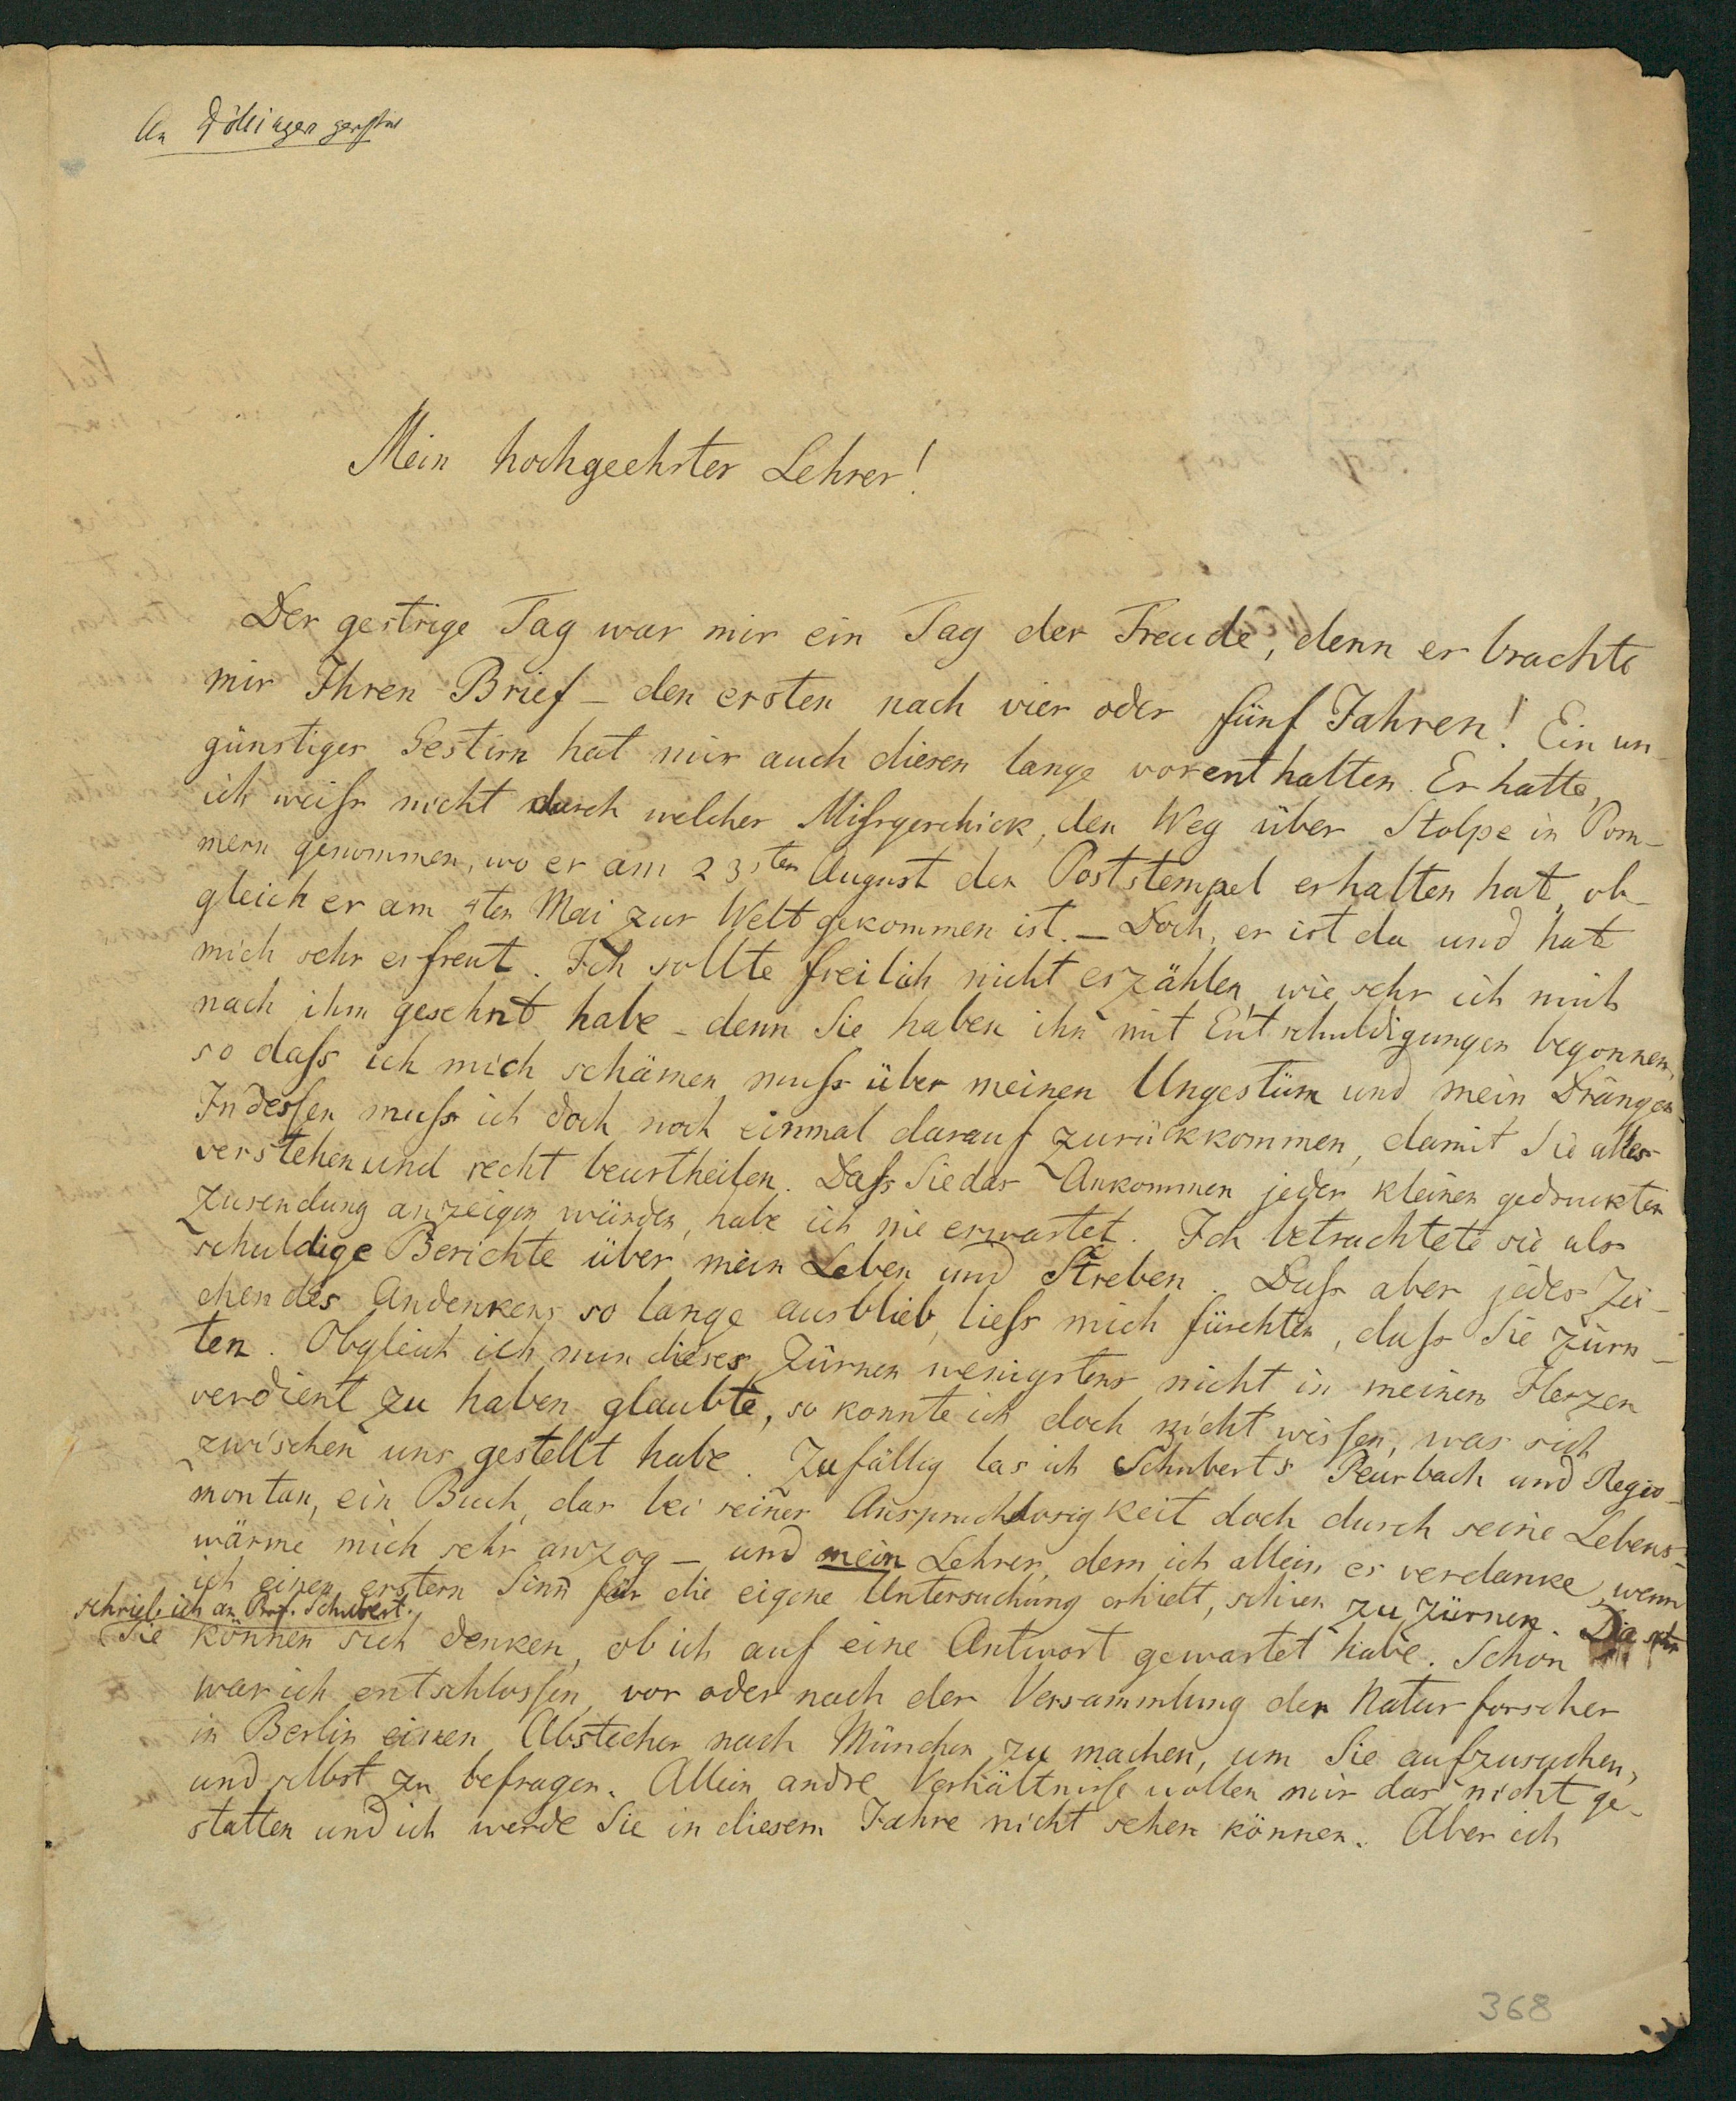 An Döllinger
Mein hochgeehrter Lehrer!
Der gestrige Tag war mir ein Tag der Freude, denn er brachte
mir Ihren Brief – den ersten nach vier oder fünf Jahren! Ein un
günstiger Gestirn hat mir auch diesen lange vorenthalten. Er hatte,
ich weiſs nicht durch welches Miſsgeschick, den Weg über Stolpe in Pom-
mern genommen, wo er am 23sten August den Poststempel erhalten hat, ob-
gleich er am 4ten Mai zur Welt gekommen ist. – Doch, er ist da und hat
mich sehr erfreut. Ich sollte freilich nicht erzählen, wie sehr ich mich
nach ihm gesehnt habe – denn Sie haben ihn mit Entschuldigungen begonnen,
so daſs ich mich schämen muſs über meinen Ungestüm und mein Drängen.
Indeſsen muſs ich doch noch einmal darauf zurückkommen, damit Sie alles
verstehen und recht beurtheilen. Daſs Sie das Ankommen jeder kleinen gedruckten
Zusendung anzeigen würden, habe ich nie erwartet. Ich betrachtete sie als
schuldige Berichte über mein Leben und Streben. Daſs aber jedes Zei-
chen des Andenkens so lange ausblieb, lieſs mich fürchten, daſs Sie zürn-
ten. Obgleich ich nun dieses Zürnen wenigstens nicht in meinem Herzen
verdient zu haben glaubte, so konnte ich doch nicht wiſsen, was sich
zwischen uns gestellt habe. Zufällig las ich Schuberts Peurbach und Regio-
montan, ein Buch, das bei seiner Anspruchslosigkeit doch durch seine Lebens-
wärme mich sehr anzog – und mein Lehrer, dem ich allein es verdanke, wenn
ich einen erstern Sinn für die eigene Untersuchung erhielt, schien zu zürnen. Da
schrieb ich an Prof. Schubert.
Sie können sich denken, ob ich auf eine Antwort gewartet habe. Schon
war ich entschloſsen, vor oder nach der Versammlung der Naturforscher
in Berlin einen Abstecher nach München zu machen, um Sie aufzusuchen,
und selbst zu befragen. Allein andre Verhältniſse wollen mir das nicht ge-
statten und ich werde Sie in diesem Jahre nicht sehen können. Aber ich
368